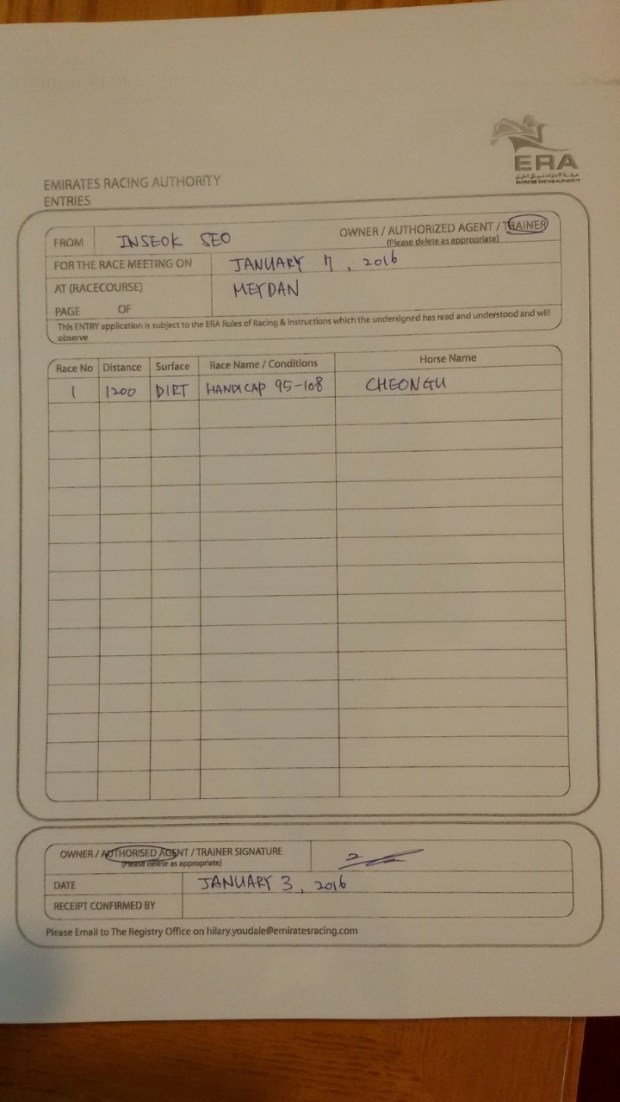 ERA
EMIRATES RACING AUTHORITY
EMIRATES RACING AUTHORITY
ENTRIES
FROM INSEOK SEO OWNER / AUTHORIZED AGENT / TRAINER
(Please delete as appropriate)
FOR THE RACE MEETING ON JANUARY 7, 2016
AT (RACECOURSE) MEYDAN
PAGE OF
This ENTRY application is subject to the ERA Rules of Racing & Instructions which the undersigned has read and understood and will
observe
Race No Distance Surface Race Name / Conditions Horse Name
1 1200 DIRT HANDICAP 95-108 CHEONGU
OWNER / AUTHORISED AGENT / TRAINER SIGNATURE
(Please delete as appropriate)
DATE JANUARY 3, 2016
RECEIPT CONFIRMED BY
Please Email to The Registry Office on hilary.youdale@emiratesracing.com